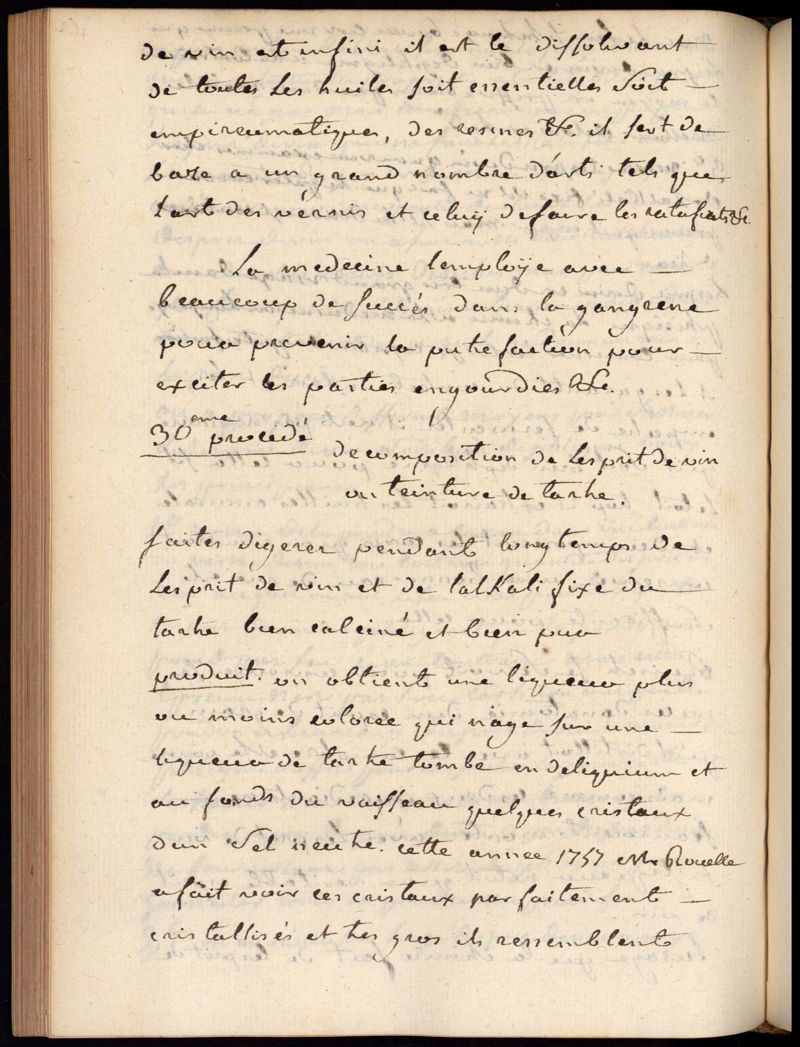 de vin est infini il est le dissolvant
de toutes Les huiles soit essentielles soit —
empireumatiques, des resines &c. il sert de
baze a un grand nombre d'arts tels que
Lart des vérnis et celuy defaire les ratafiats &c.
La medecine lemploÿe avec —
beaucoup de succés dans la gangrene
pour prevenir la putrefaction pour —
exciter les parties engourdies &c.
30eme procedé
decomposition de Lesprit de vin
ou teinture de tartre.
faites digerer pendant longtemps de
Lesprit de vin et de lalKali fixe du
tartre bien calciné et bien pur
produit. on obtient une liqueur plus
ou moins coloree qui nage sur une —
liqueur de tartre tombé en deliquium et
au fonds du vaisseau quelques cristaux
dun sel neutre. cette annee 1757 Mr Rouelle
a fait voir ces cristaux parfaitement —
cristallisés et tres gros ils ressemblent